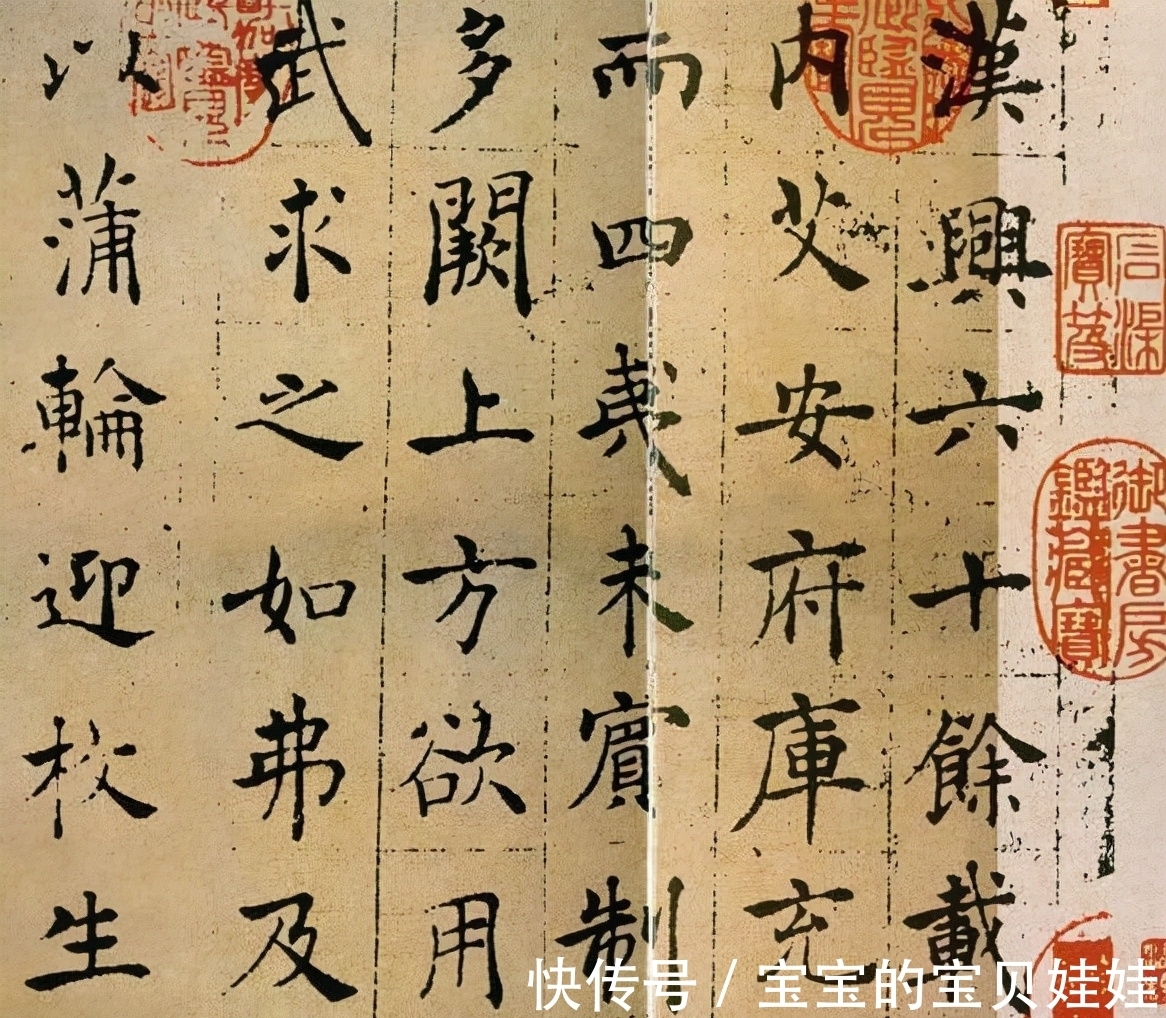 石渠寶笈
御書房鑑藏寶
漢興六十餘載
内艾安府庫充
而四夷未賓制
多闕上方欲用
武求之如弗及
以蒲輪迎枚生
快传号 / 宝宝的宝贝娃娃